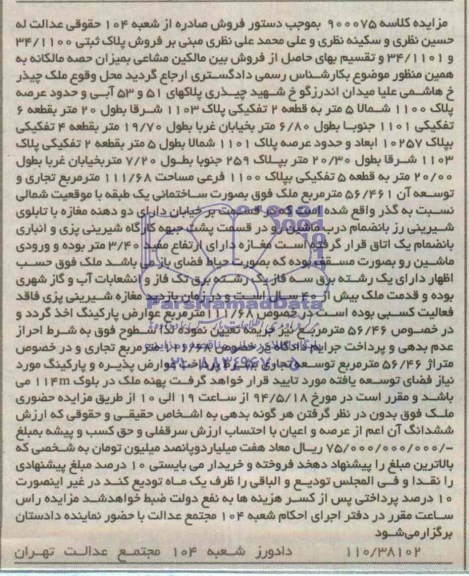 مزایده کلاسه ۹۰۰۰۷۵ بموجب دستور فروش صادره از شعبه ۱۰۴ حقوقی عدالت له
حسین نظری و سکینه نظری و علی محمد علی نظری مبنی بر فروش پلاک ثبتی ۳۴/۱۱۰۰
و ۳۴/۱۱۰۱ و تقسیم بهای حاصل از فروش بین مالکین مشاعی بمیزان حصه مالکانه به
همین منظور موضوع بکارشناس رسمی دادگستری ارجاع گردید محل وقوع ملک چیذر
خ هاشمی علیا میدان اندرزگو خ شهید چیذری پلاکهای ۵۱ و ۵۳ آبی و حدود عرصه
پلاک ۱۱۰۰ شمالا ۵ متر به قطعه ۲ تفکیکی پلاک ۱۱۰۳ شرقا بطول ۲۰ متر بقطعه ۶
تفکیکی ۱۱۰۱ جنوبا بطول ۶/۸۰ متر بخیابان غربا بطول ۱۹/۷۰ متر بقطعه ۴ تفکیکی
بپلاک ۱۰۲۵۷ ابعاد و حدود عرصه پلاک ۱۱۰۱ شمالا بطول ۵ متر بقطعه ۲ تفکیکی پلاک
۱۱۰۳ شرقا بطول ۲۰/۳۰ متر بپلاک ۲۵۹ جنوبا بطول ۷/۲۰ متربخیابان غربا بطول
۲۰/۰۰ متر به قطعه ۵ تفکیکی بپلاک ۱۱۰۰ فرعی مساحت ۱۱۱/۶۸ مترمربع تجاری و
توسعه آن ۵۶/۴۶۱ مترمربع ملک فوق بصورت ساختمانی یک طبقه با موقعیت شمالی
نسبت به گذر واقع شده است که در قسمت بر خیابان دارای دو دهنه مغازه با تابلوی
شیرینی رز بانضمام درب ماشین رو در قسمت پشت جبهه کارگاه شیرینی پزی و انباری
بانضمام یک اتاق قرار گرفته است مغازه دارای ارتفاع مفید ۳/۴۰ متر بوده و ورودی
ماشین رو بصورت مسقف بوده که بصورت حیاط فضای باز می باشد ملک فوق حسب
اظهار دارای یک رشته برق سه فاز یک رشته برق تک فاز و انشعابات آب و گاز شهری
بوده و قدمت ملک بیش از ۴۰ سال است و در زمان بازدید مغازه شیرینی پزی فاقد
فعالیت کسبی بوده است در خصوص ۱۱۱/۶۸ مترمربع عوارض پارکینگ اخذ گردد و
در خصوص ۵۶/۴۶ مترمربع نیز جریمه تعیین نموده لذا سطوح فوق به شرط احراز
عدم بدهی و پرداخت جرایم دادگاه در خصوص ۱۱۱/۶۸ مترمربع تجاری و در خصوص
متراژ ۵۶/۴۶ مترمربع توسعه تجاری پرداخت عوارض پذیره و پارکینگ مورد
نیاز فضای توسعه یافته مورد تایید قرار خواهد گرفت پهنه ملک در بلوک ۱۱۴m می
باشد و مقرر است در مورخ ۹۴/۵/۱۸ از ساعت ۱۹ الی ۱۰ از طریق مزایده حضوری
ملک فوق بدون در نظر گرفتن هر گونه بدهی به اشخاص حقیقی و حقوقی که ارزش
ششدانگ آن اعم از عرصه و اعیان با احتساب ارزش سرقفلی و حق کسب و پیشه بمبلغ
۷۵/۰۰۰/۰۰۰/۰۰۰/- ریال معاد هفت میلیاردوپانصد میلیون تومان به شخصی که
بالاترین مبلغ را پیشنهاد دهد فروخته و خریدار می بایستی ۱۰ درصد مبلغ پیشنهادی
را نقدا و فی المجلس تودیع و الباقی را ظرف یک ماه تودیع کند در غیر اینصورت
۱۰ درصد پرداختی پس از کسر هزینه ها به نفع دولت ضبط خواهدشد مزایده راس
ساعت مقرر در دفتر اجرای احکام شعبه ۱۰۴ مجتمع عدالت با حضور نماینده دادستان
برگزار می‌شود
۱۱۰/۳۸۱۰۲ دادورز شعبه ۱۰۴ مجتمع عدالت تهران
ParsNamadData